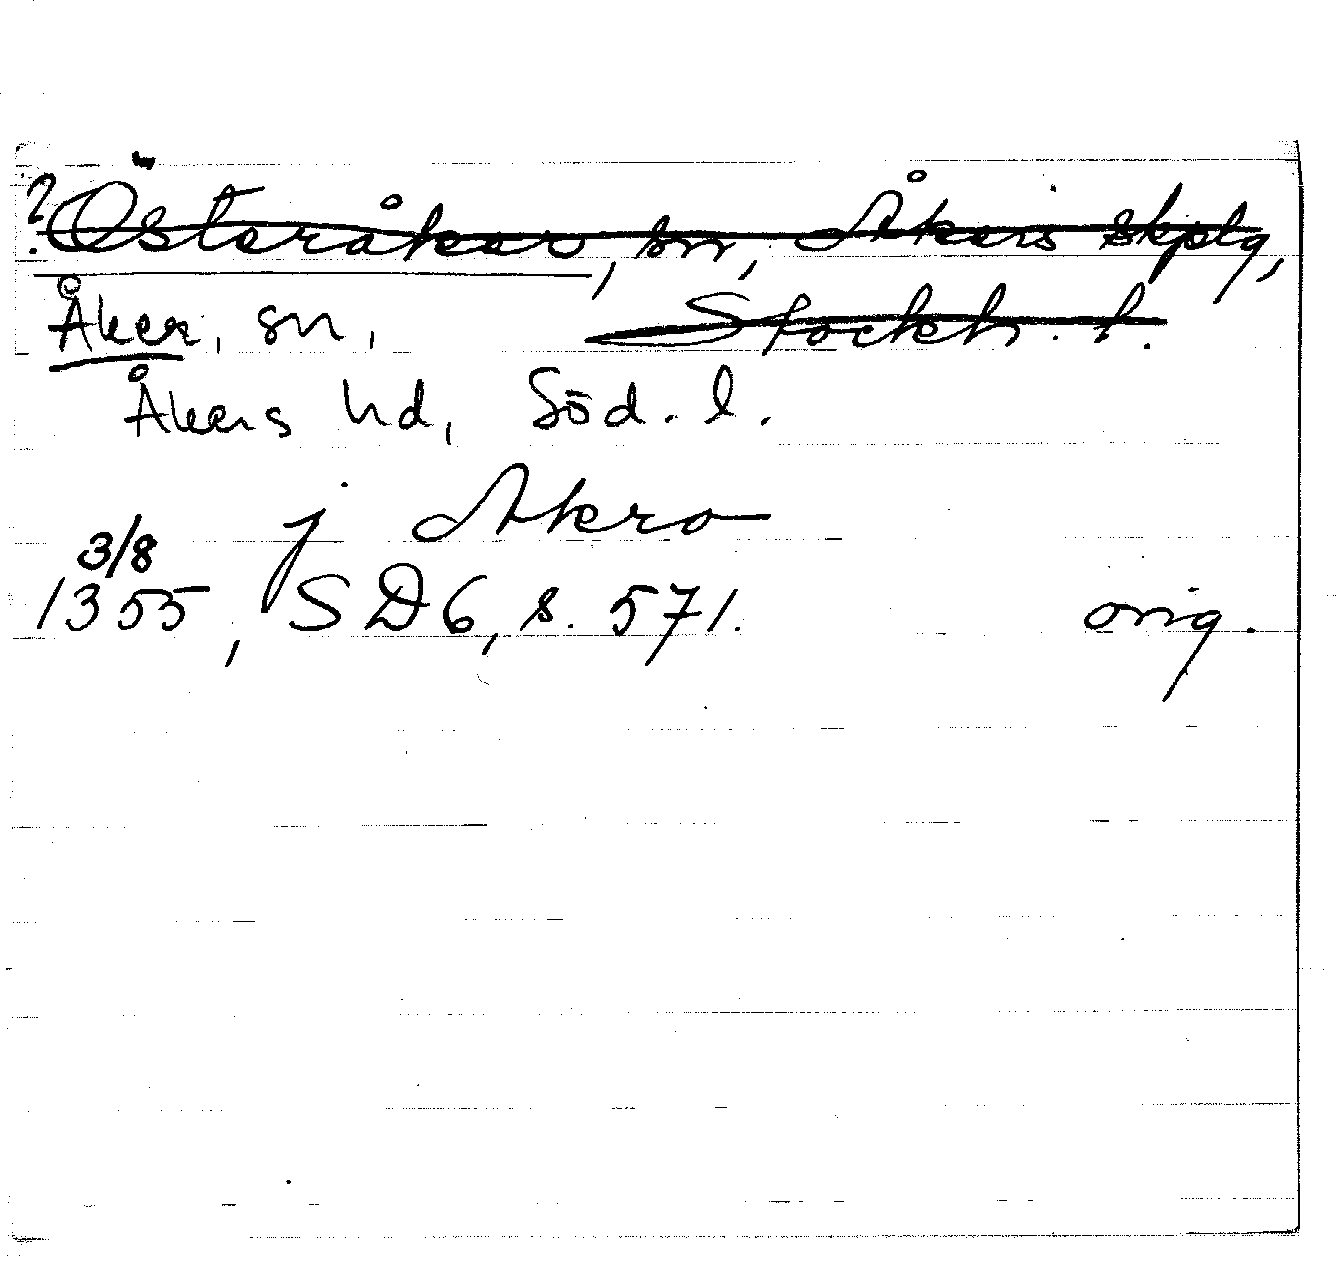 ? Österåker, sn, Åkers skplg,
Stockh. l.
Åker, sn,
Åkers hd, Söd. l.
j Akro
3/8
1355, SD 6, s. 571. orig.